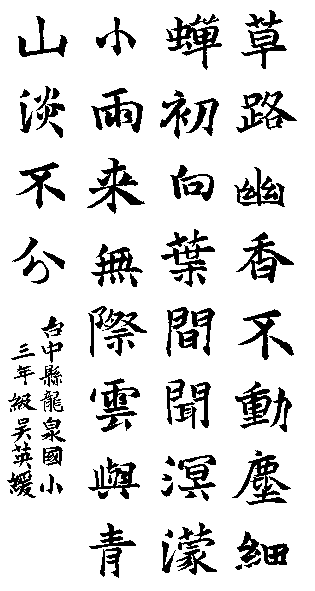 草路幽香不動塵細
蟬初向葉間聞溟濛
小雨來無際雲與青
山淡不分
台中縣龍泉國小
三年級吳英媛